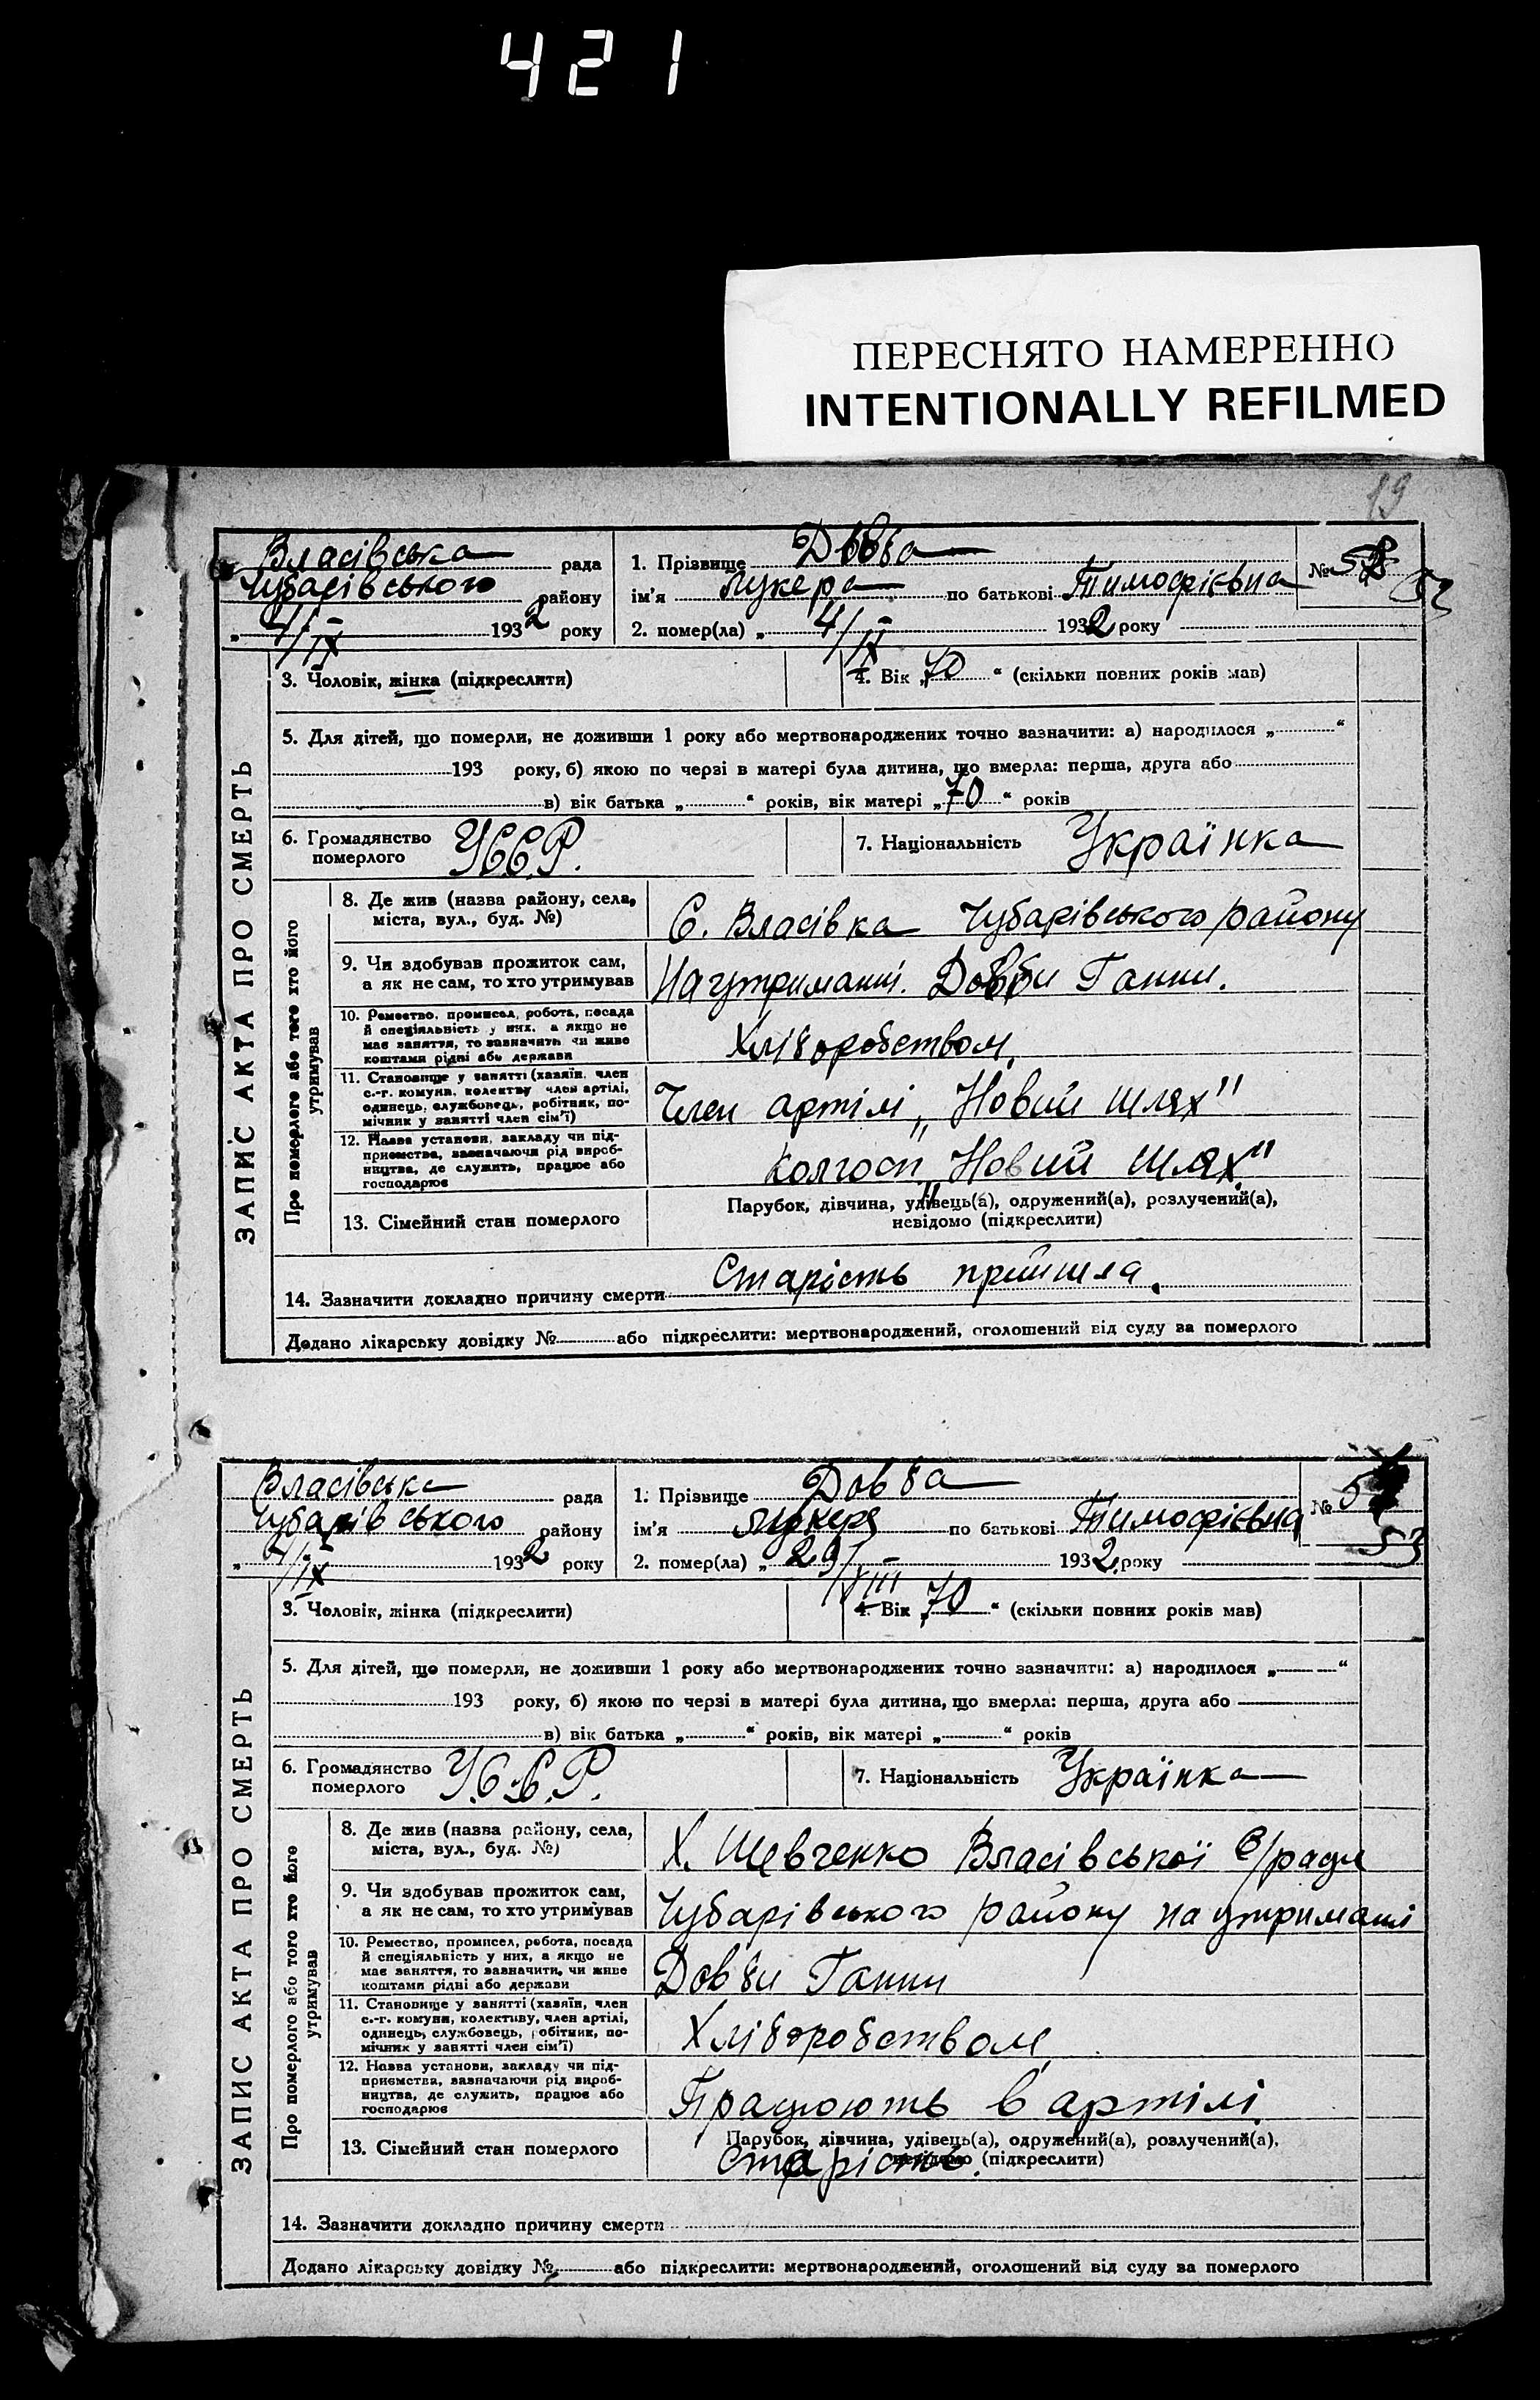 421
ПЕРЕСНЯТО НАМЕРЕННО
INTENTIONALLY REFILMED
19
ЗАПИС АКТА ПРО СМЕРТЬ
Власівська рада
Чубарівського району
„ 4/IX 1932 року
1. Прізвище Довба
ім'я Лукера по батькові Тимофієвна
2. помер(ла) „ 4/IX 1932 року
№ 52
3. Чоловік, жінка (підкреслити)
4. Вік „70“ (скільки повних років мав)
5. Для дітей, що померли, не доживши 1 року або мертвонароджених точно зазначити: а) народилося „ “
193 року, б) якою по черзі в матері була дитина, що вмерла: перша, друга або
в) вік батька „ “ років, вік матері „70“ років
6. Громадянство померлого УССР.
7. Національність Українка
Про померлого або того хто його утримував
8. Де жив (назва району, села,
міста, вул., буд. №)
С. Власівка Чубарівського району
9. Чи здобував прожиток сам,
а як не сам, то хто утримував
На утриманні. Довби Ганни.
10. Ремество, промисел, робота, посада
й спеціяльність у них, а якщо не
має заняття, то зазначить чи живе
коштами рідні або держави
Хліборобством.
11. Становище у занятті (хазяїн, член
с.-г. комуни, колективу член артілі,
одинець, службовець, робітник, по-
мічник у занятті член сім'ї)
Член артілі „Новий шлях"
12. Назва установи, закладу чи під-
приємства, зазначаючи рід вироб-
ництва, де служить, працює або
господарює
Колгосп „Новий шлях"
13. Сімейний стан померлого
Парубок, дівчина, удівець(а), одружений(а), розлучений(а),
невідомо (підкреслити)
14. Зазначити докладно причину смерти Старість прийшла.
Додано лікарську довідку № або підкреслити: мертвонароджений, оголошений від суду за померлого
ЗАПИС АКТА ПРО СМЕРТЬ
Власівська рада
Чубарівського району
„ 4/IX 1932 року
1. Прізвище Довба
ім'я Лукеря по батькові Тимофієвна
2. помер(ла) „ 29/VIII 1932 року
№ 53
3. Чоловік, жінка (підкреслити)
4. Вік „70“ (скільки повних років мав)
5. Для дітей, що померли, не доживши 1 року або мертвонароджених точно зазначити: а) народилося „ “
193 року, б) якою по черзі в матері була дитина, що вмерла: перша, друга або
в) вік батька „ “ років, вік матері „ “ років
6. Громадянство померлого У.С.С.Р.
7. Національність Українка
Про померлого або того хто його утримував
8. Де жив (назва району, села,
міста, вул., буд. №)
Х. Шевченко Власівської с/ради
9. Чи здобував прожиток сам,
а як не сам, то хто утримував
Чубарівського району на утриманні
10. Ремество, промисел, робота, посада
й спеціяльність у них, а якщо не
має заняття, то зазначити, чи живе
коштами рідні або держави
Довби Ганни
11. Становище у занятті (хазяїн, член
с.-г. комуни, колективу, член артілі,
одинець, службовець, робітник, по-
мічник у занятті член сім'ї)
Хліборобством
12. Назва установи, закладу чи під-
приємства, зазначаючи рід вироб-
ництва, де служить, працює або
господарює
Працюють в артілі.
13. Сімейний стан померлого
Парубок, дівчина, удівець(а), одружений(а), розлучений(а),
невідомо (підкреслити)
Старість.
14. Зазначити докладно причину смерти
Додано лікарську довідку № або підкреслити: мертвонароджений, оголошений від суду за померлого